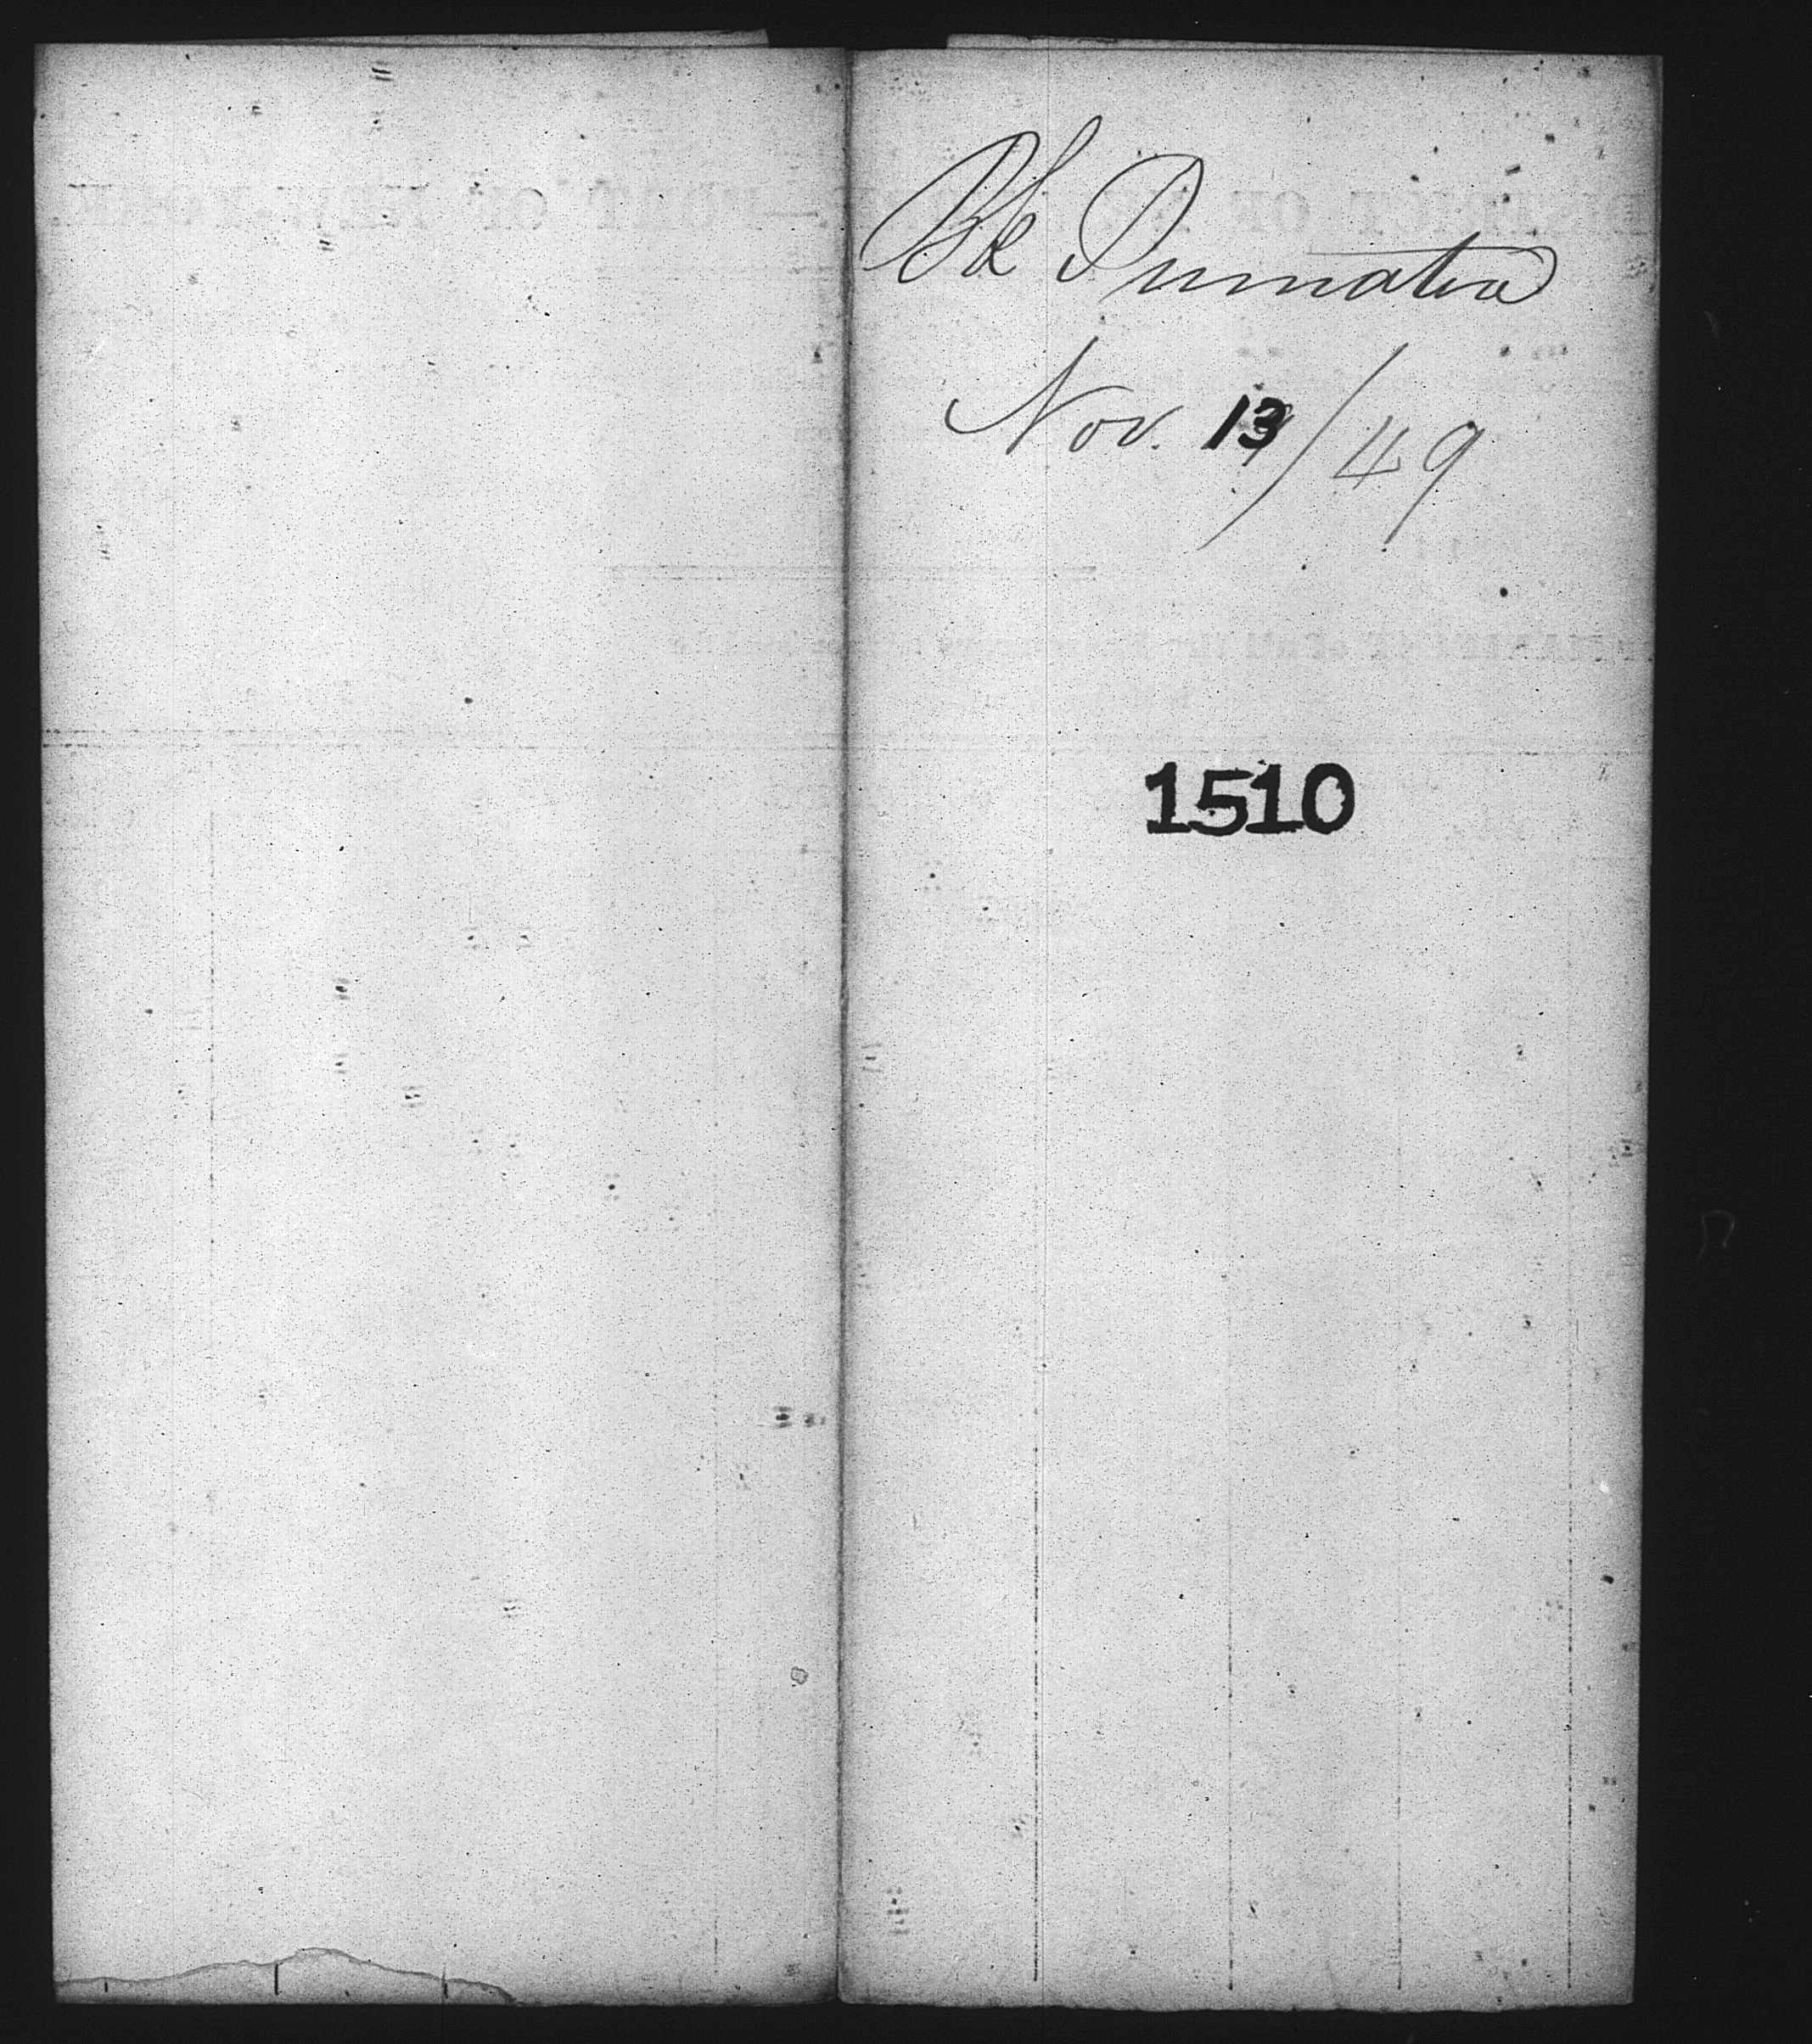 Bk Sumatra
Nov. 13/49
1510